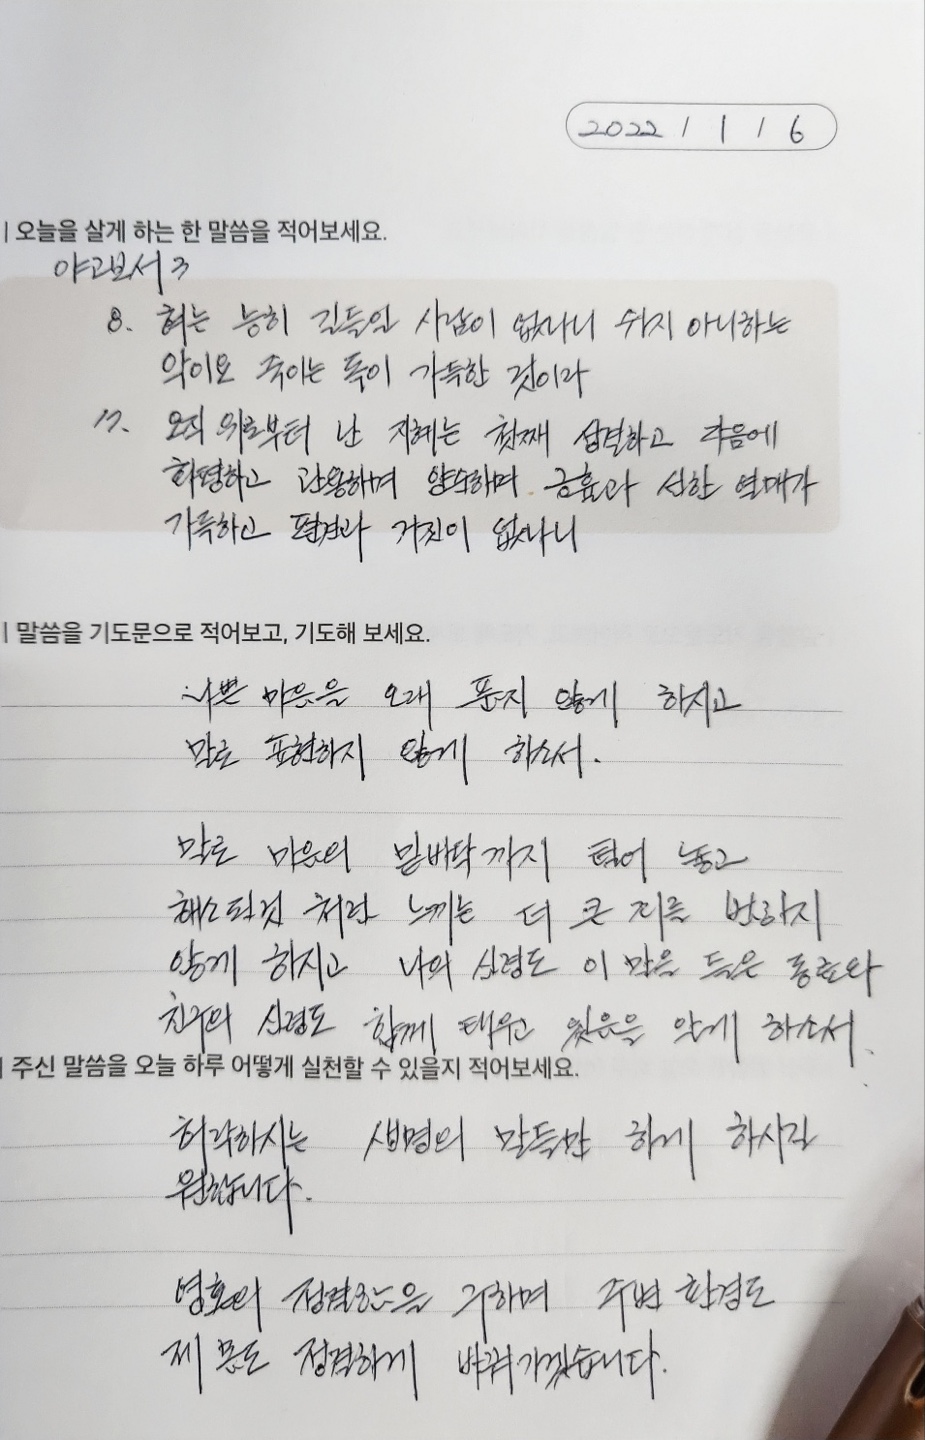 2022 / 1 / 6
| 오늘을 살게 하는 한 말씀을 적어보세요.
야고보서 3
8. 혀는 능히 길들일 사람이 없나니 쉬지 아니하는
악이요 죽이는 독이 가득한 것이라
17. 오직 위로부터 난 지혜는 첫째 성결하고 다음에
화평하고 관용하며 양순하며 긍휼과 선한 열매가
가득하고 편견과 거짓이 없나니
| 말씀을 기도문으로 적어보고, 기도해 보세요.
나쁜 마음을 오래 품지 않게 하시고
말로 표현하지 않게 하소서.
말로 마음의 밑바닥까지 털어 놓고
해소된것 처럼 느끼는 더 큰 죄를 범하지
않게 하시고 나의 심령도 이 말을 들은 동료와
친구의 심령도 함께 태우고 있음을 알게 하소서.
| 주신 말씀을 오늘 하루 어떻게 실천할 수 있을지 적어보세요.
허락하시는 생명의 말들만 하게 하시길
원합니다.
영혼의 정결함을 구하며 주변 환경도
제 몸도 정결하게 바꿔가겠습니다.